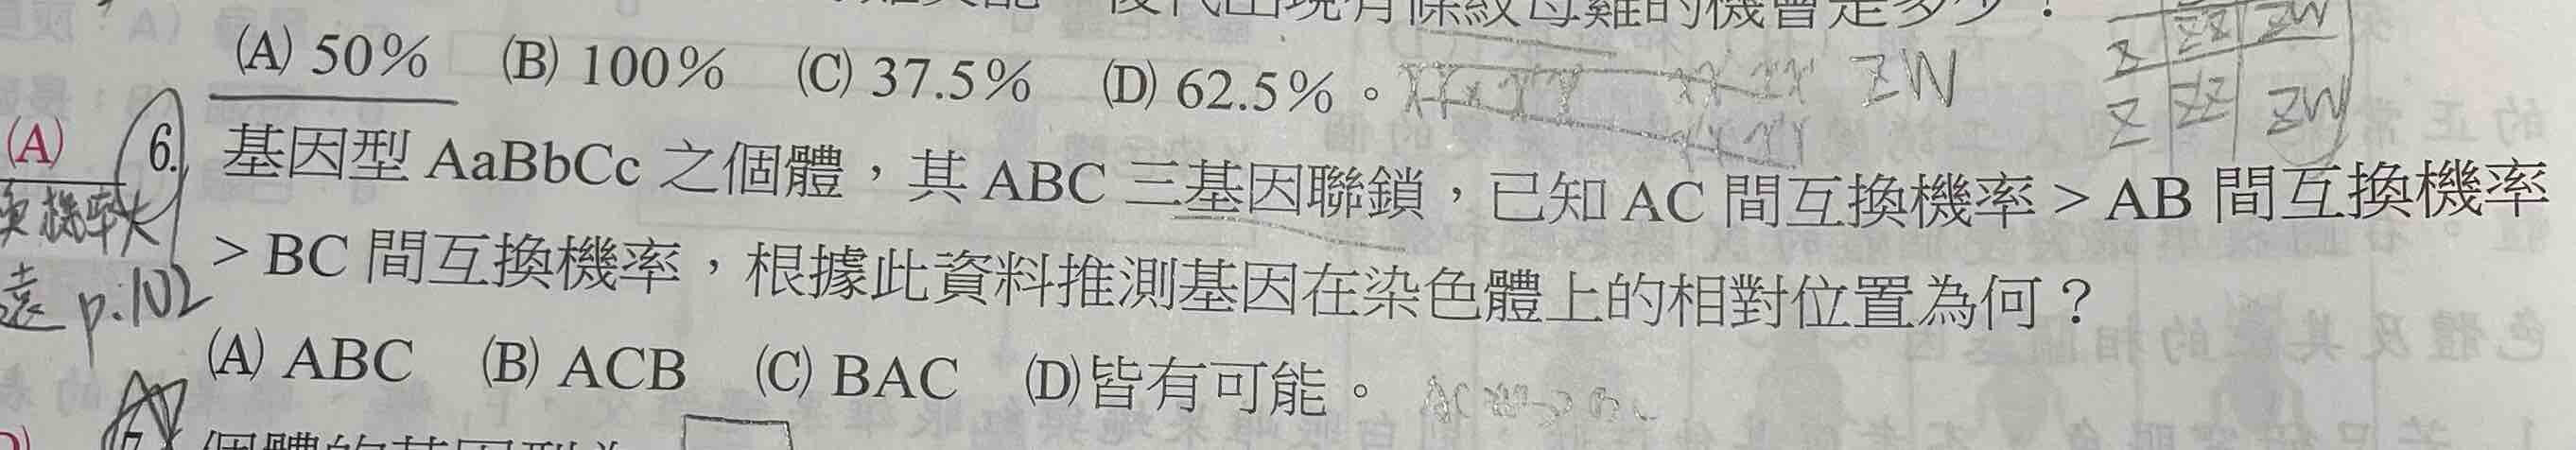 後代出現有條紋母雞的機會是多少？
(A) 50% (B) 100% (C) 37.5% (D) 62.5%。 ZW
Z ZZ ZW
Z ZZ ZW
(A) 6. 基因型 AaBbCc 之個體，其 ABC 三基因聯鎖，已知 AC 間互換機率 > AB 間互換機率
換機率大
> BC 間互換機率，根據此資料推測基因在染色體上的相對位置為何？
遠 p.102
(A) ABC (B) ACB (C) BAC (D)皆有可能。